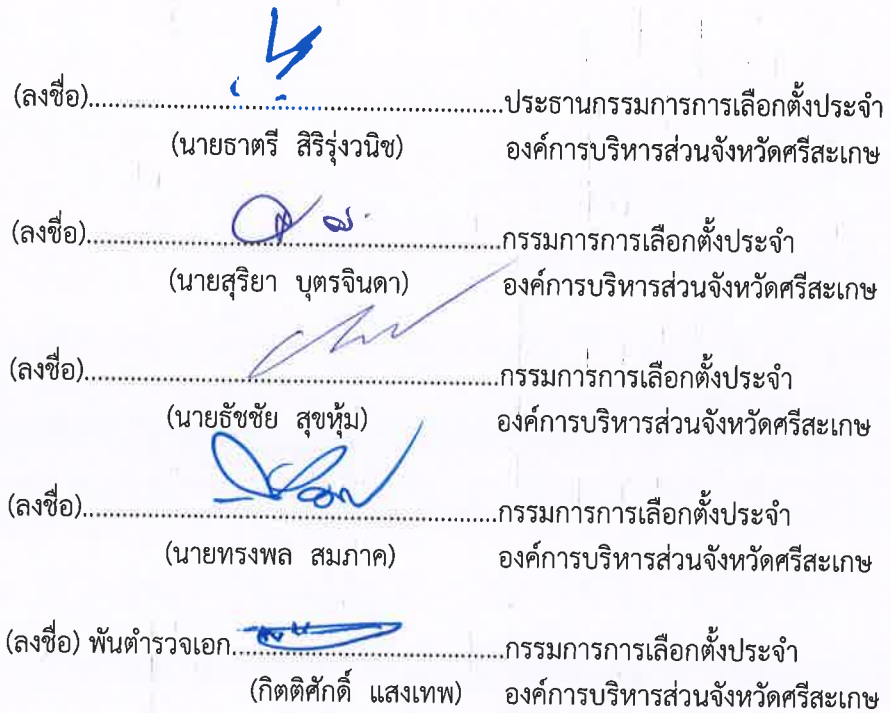 (ลงชื่อ)..........................................................ประธานกรรมการการเลือกตั้งประจำ
(นายธาตรี สิริรุ่งวนิช) องค์การบริหารส่วนจังหวัดศรีสะเกษ
(ลงชื่อ)..........................................................กรรมการการเลือกตั้งประจำ
(นายสุริยา บุตรจินดา) องค์การบริหารส่วนจังหวัดศรีสะเกษ
(ลงชื่อ)..........................................................กรรมการการเลือกตั้งประจำ
(นายธัชชัย สุขหุ้ม) องค์การบริหารส่วนจังหวัดศรีสะเกษ
(ลงชื่อ)..........................................................กรรมการการเลือกตั้งประจำ
(นายทรงพล สมภาค) องค์การบริหารส่วนจังหวัดศรีสะเกษ
(ลงชื่อ) พันตำรวจเอก......................................กรรมการการเลือกตั้งประจำ
(กิตติศักดิ์ แสงเทพ) องค์การบริหารส่วนจังหวัดศรีสะเกษ